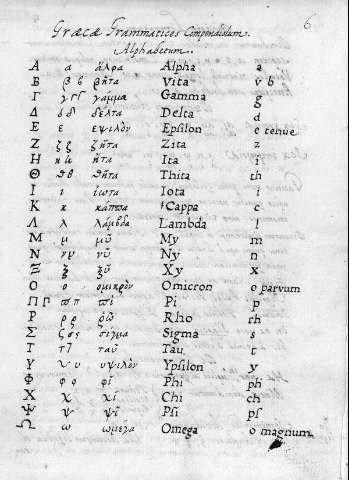 6
Græcæ Grammatices Compendiolum
Alphabetum.
Α α ἄλφα Alpha a
Β β ϐ βῆτα Vita v b
Γ γ γάμμα Gamma g
Δ δ δέλτα Delta d
Ε ε εψιλὸν Epsilon e tenue
Ζ ζ ζ ζῆτα Zita z
Η η ἦτα Ita i
Θ ϑ θ θῆτα Thita th
Ι ι ἰωτα Iota i
Κ κ κάππα Cappa c
Λ λ λάμβδα Lambda l
Μ μ μῦ My m
Ν ν νῦ Ny n
Ξ ξ ξῦ Xy x
Ο ο ομικρὸν Omicron o parvum
Π Γ ϖ π πῖ Pi p
Ρ ρ ρ ῥῶ Rho rh
Σ ς σ ς σιγμα Sigma s
Τ τ ταῦ Tau t
Υ υ υψιλὸν Ypsilon y
Φ φ φ φῖ Phi ph
Χ χ χῖ Chi ch
Ψ ψ ψῖ Psi ps
Ω ω ωμεγα Omega o magnum.